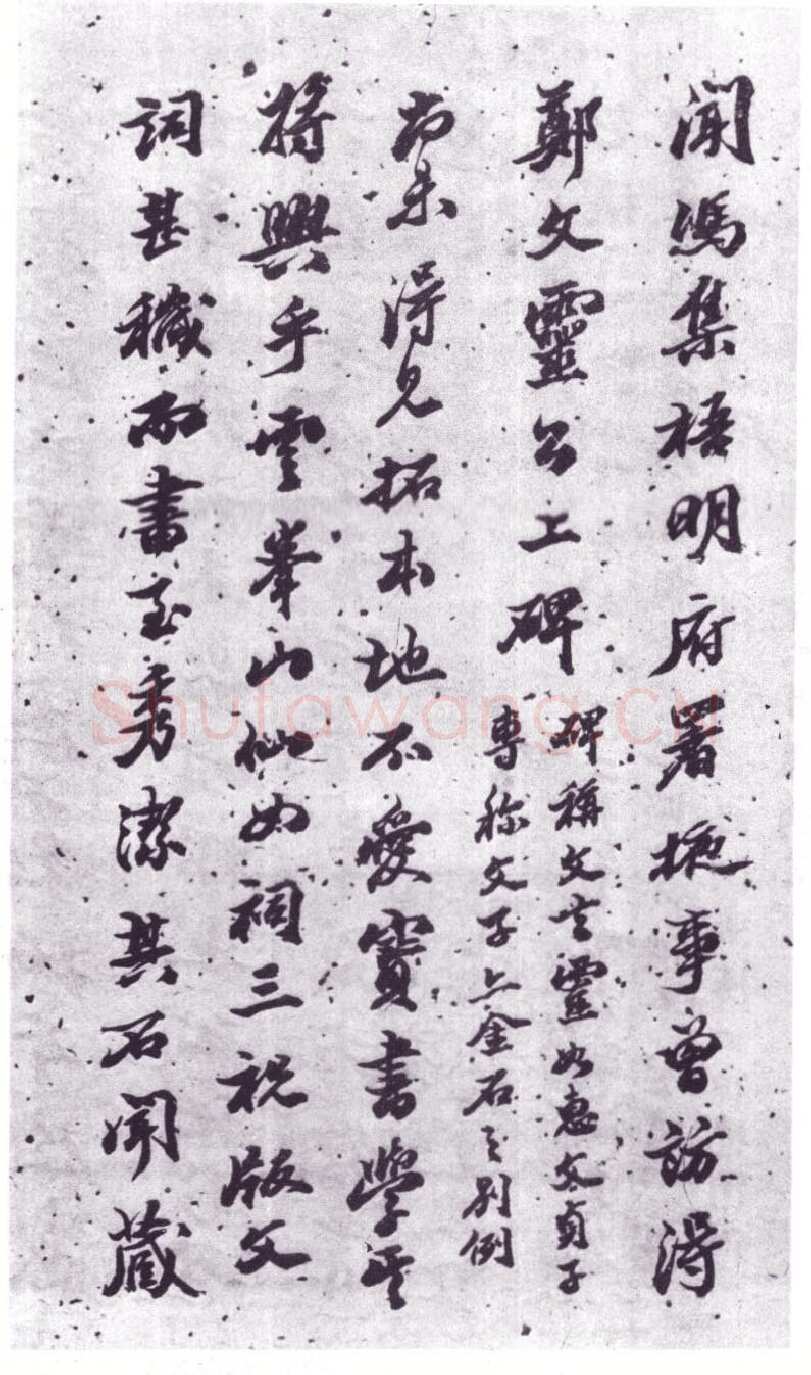 聞馮集梧明府署掖事曾訪得
鄭文靈公上碑
碑稱文言靈如惠文貞子
專称文子上金石之別例
尚未得見拓本地不愛寶書學其
將興乎雲峯山仙如祠三祝版文
詞甚穢而書至秀潔其石聞藏
Shufawang.cn